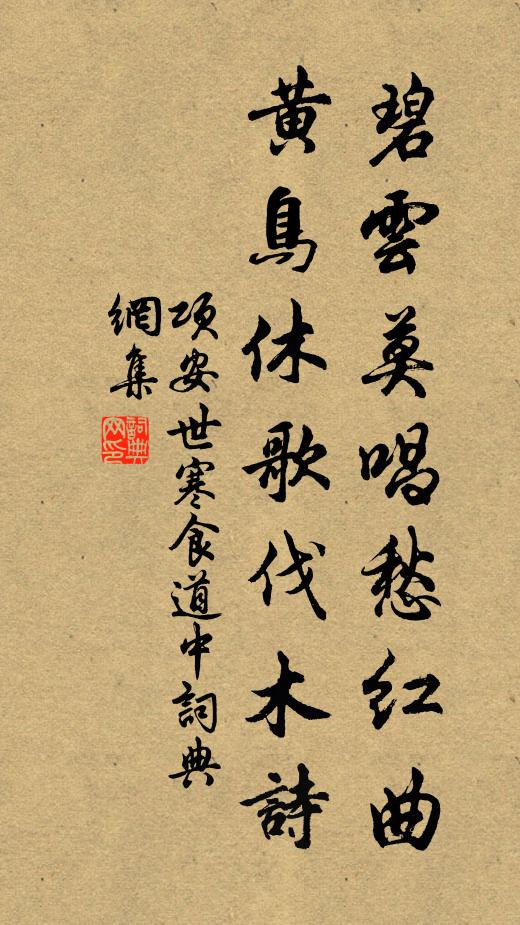 碧雲莫唱愁紅曲
黃鳥休歌伐木詩
項安世寒食道中詞典
網集
詞典
网印